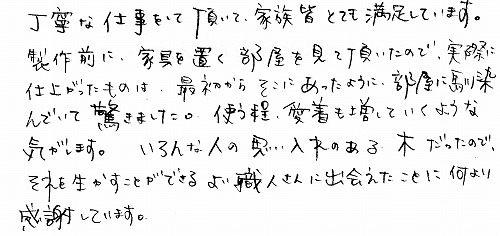 丁寧な仕事をして頂いて、家族皆とても満足しています。
製作前に、家具を置く部屋を見て頂いたので、実際に
仕上がったものは、最初からそこにあったように、部屋に馴染
んでいて驚きました。使う程、愛着も増していくような
気がします。 いろんな人の思い入れのある木だったので、
それを生かすことができるよい職人さんに出会えたことに何より
感謝しています。